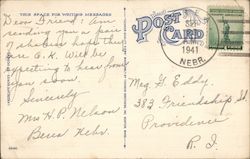 THIS SPACE FOR WRITING MESSAGES
Dear Friend: Am
sending you a pair
of shakers hope they
are O.K. Will be
expecting to hear from
you soon.
Sincerely
Mrs H.P. Nelson
Nebr.
POST CARD
1941
NEBR.
Meg. G. Eddy.
383 Friendship St
Providence
R. I.